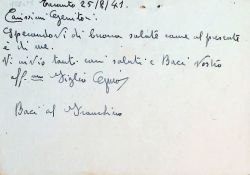 Taranto 25/8/41.
Carissimi Genitori:
Sperandovi di buona salute come al presente
è di me.
Vi invio tanti cari saluti e Baci Vostro
aff. mo Figlio
Baci al Franchino